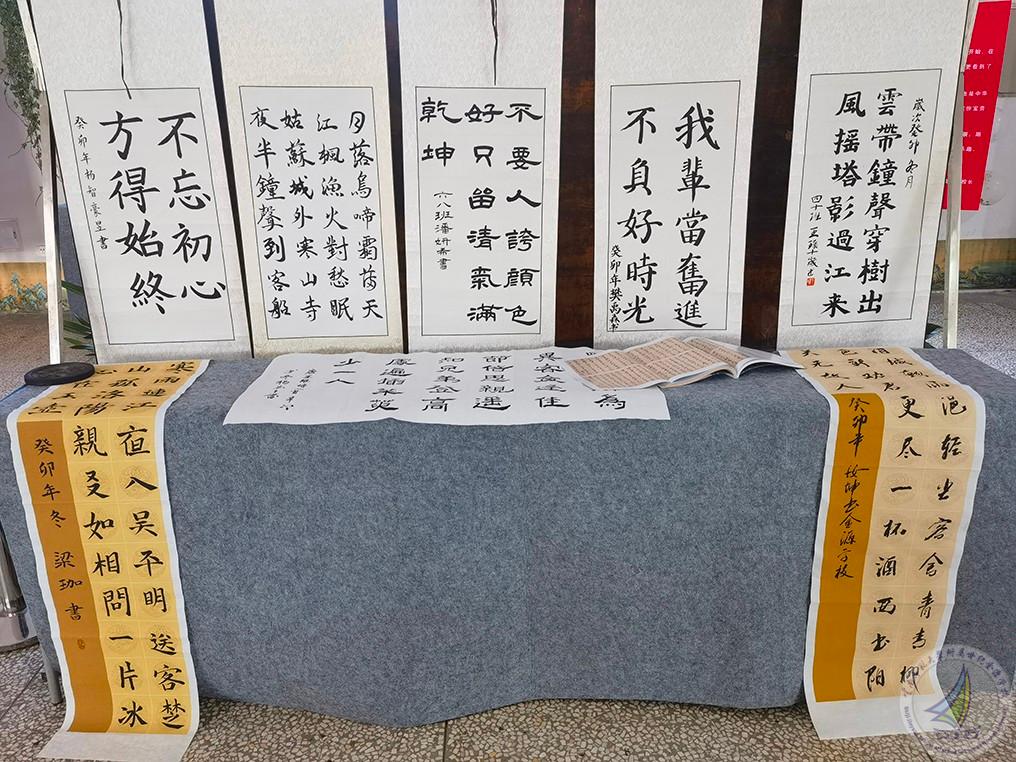 不忘初心
方得始終
癸卯年杨智豪呈書
月落烏啼霜滿天
江楓漁火對愁眠
姑蘇城外寒山寺
夜半鐘聲到客船
不要人誇顏色
好只留清氣滿
乾坤
六八班潘妍希書
我輩當奮進
不負好時光
癸卯年樊禹森书
歲次癸卯冬月
雲帶鐘聲穿樹出
風摇塔影過江来
四十班
寒雨連江夜入吴平明送客楚
山孤洛陽親友如相問一片冰
在玉壺
癸卯年冬 梁珈書
為
異客每逢佳
節倍思親遥
知兄弟登高
處遍插茱萸
少一人
城朝雨浥轻尘客舍青青柳
色新勸君更尽一杯酒西出阳
关无故人
癸卯年 书金源学校